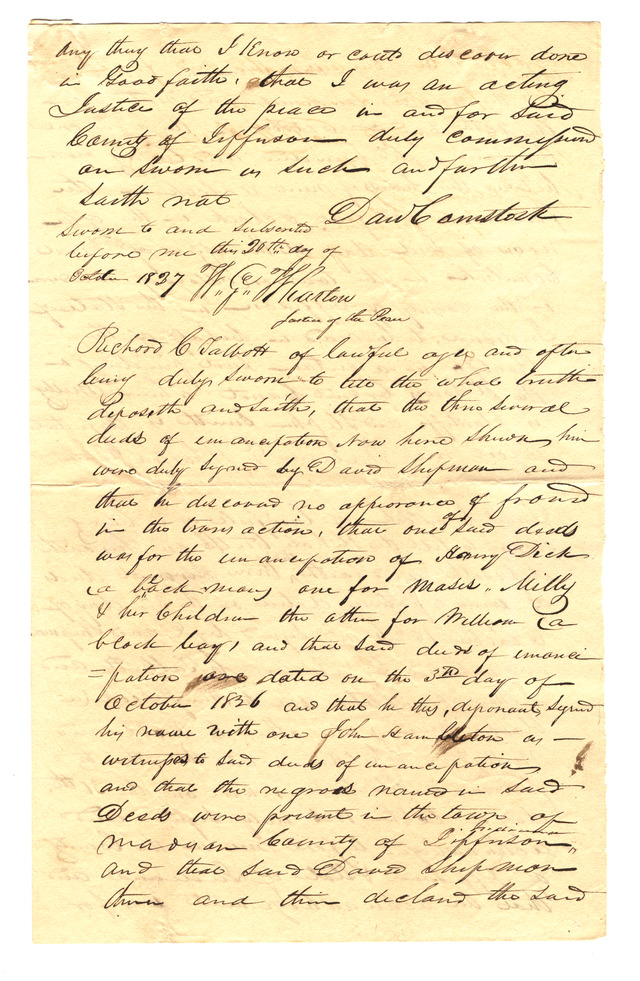 any they that I Know or could discover done
in Good faith, that I was an acting
Justice of the peace in and for Said
County of Jefferson duly commissiond
an Sworn as Such and further
Saith not
Dav Comstock
Sworn to and Subscrited
before me this 20th day of
1837 W. G. Wharton
Justice of the Peace
Richard C Talbott of lawful age and after
being duly Sworn to the what truth
deposeth and Saith, that the three several
deeds of emancipation now here Shewn him
were duly Signed by David Shipman and
that he discovered no apperance of froud
in the trans action, that one of Said deeds
was for the emancipation of Henry Dick
a black man, one for Moses, Milly
& her Children the other for William (a
black boy, and that Said deeds of emanci
=pation are dated on the 3rd day of
October 1826 and that he this, deponant, Signed
his name with one John Hambleton as —
witness to Said deeds of emancipation
and that the negroes named in Said
Deeds were present in the town of
Madison County of Jefferson Indiana
and that Said David Shipman
then and then declared the Said